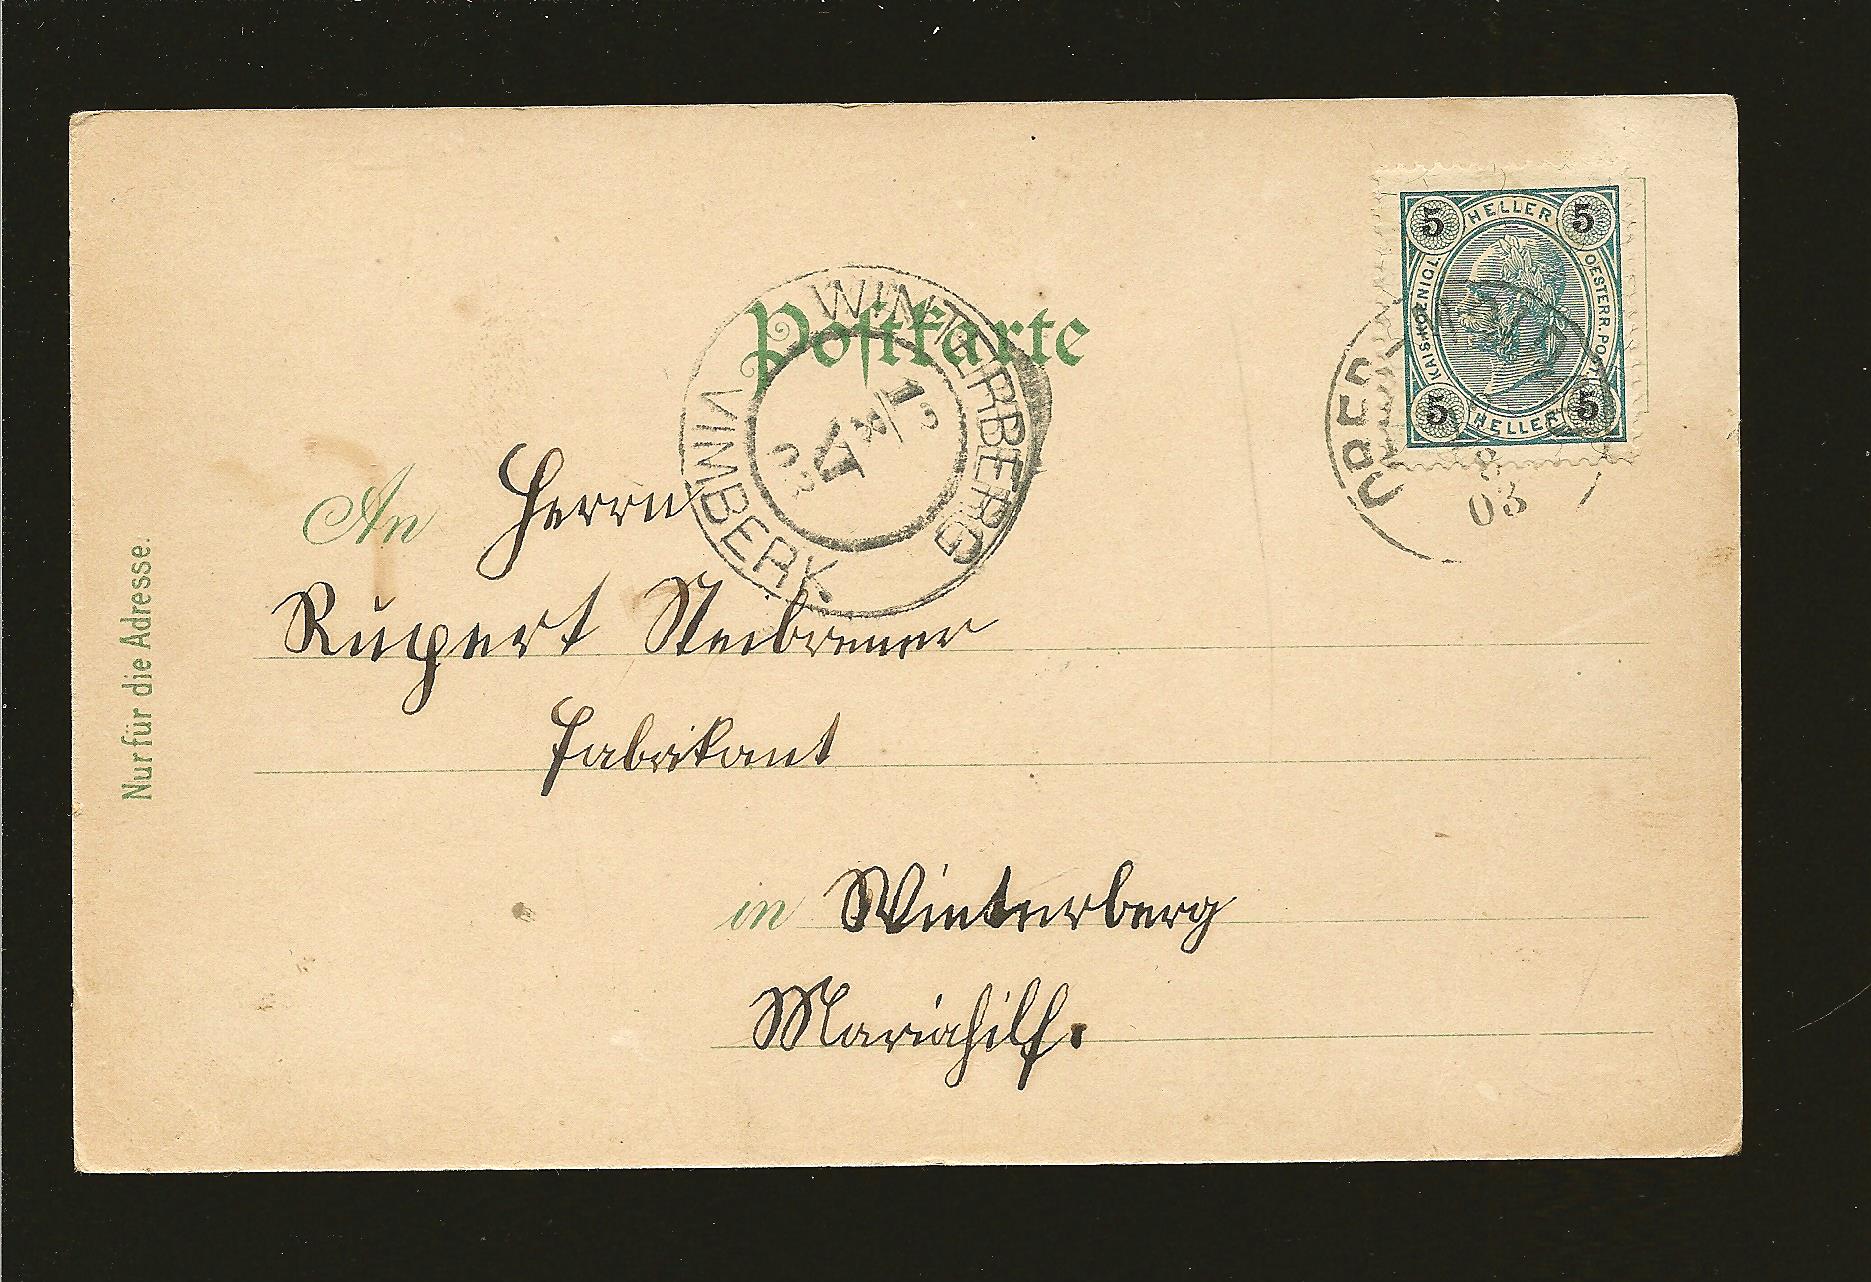 Postkarte
5 HELLER 5
KAIS. KOENIGL.
OESTERR. POST.
5 HELLER 5
8
03
WINTERBERG
VIMBERK.
An Herrn
Rupert Steibrener
Fabrikant
in Winterberg
Mariahilf.
Nur für die Adresse.